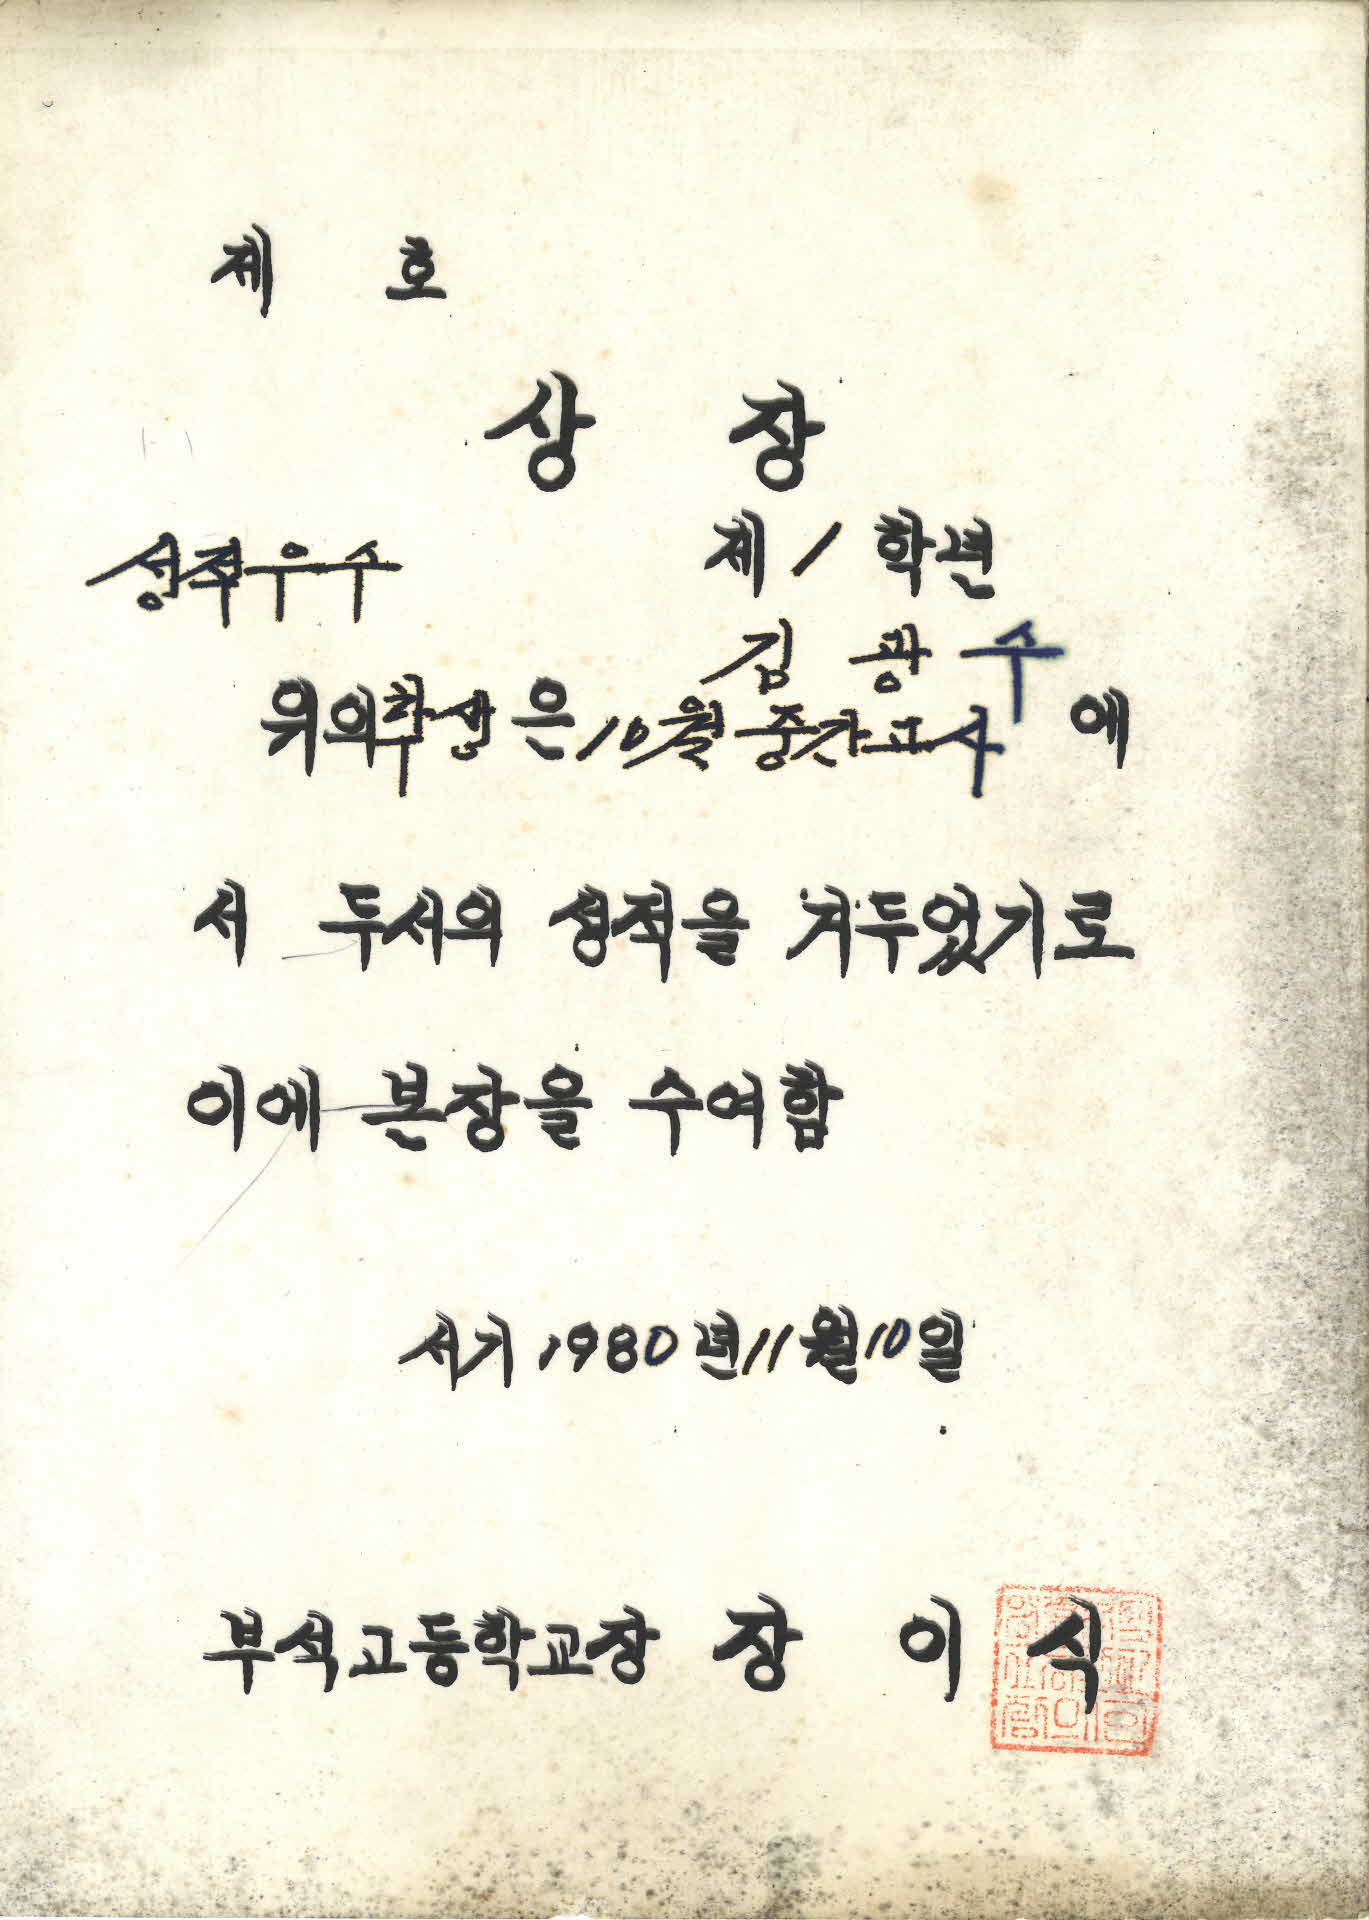 제 호
상 장
성적우수
제 1 학년
김 광 수
위의학생은 10월 중간고사에
서 두서의 성적을 거두었기로
이에 본장을 수여함
서기 1980년 11월 10일
부석고등학교장 장 이 식